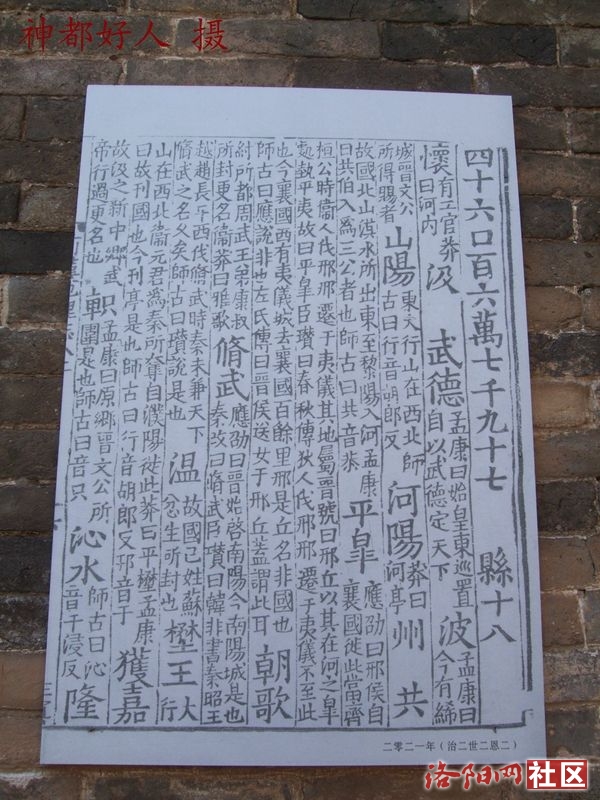 神都好人 摄
四十六口百六萬七千九十七 縣十八
懷 有工官莽曰河內 汲 武德 孟康曰始皇東巡置自以武德定天下 波 孟康曰今有絺
城晉文公所得賜者 山陽 東太行山在西北師古曰行音胡郎反 河陽 莽曰河亭 州 共
故國北山淇水所出東至黎陽入河孟康曰共伯入為三公者也師古曰共音恭 平臯 應劭曰邢侯自襄國徙此當齊
桓公時衞人伐邢邢遷于夷儀其地屬晉號曰邢丘以其在河之臯處埶平夷故曰平臯臣瓚曰春秋傳狄人伐邢邢遷于夷儀不至此
也今襄國西有夷儀城去襄國百餘里邢是丘名非國也師古曰應說非也左氏傳曰晉侯送女于邢丘蓋謂此耳 朝歌
紂所都周武王弟康叔所封更名衞莽曰雅歌 脩武 應劭曰晉始啓南陽今南陽城是也秦改曰脩武臣瓚曰韓非書秦昭王
越趙長平西伐脩武時秦未兼天下脩武之名久矣師古曰瓚說是也 溫 故國己姓蘇忿生所封也 壄王 太行
山在西北衞元君為秦所奪自濮陽徙此莽曰平壄孟康曰故邗國也今邗亭是也師古曰行音胡郎反邗音于 獲嘉
故汲之新中鄉武帝行過更名也 軹 孟康曰原鄉晉文公所圍是也師古曰音只 沁水 師古曰沁音千浸反 隆
二零二一年（治二世二恩二）
洛阳网社区